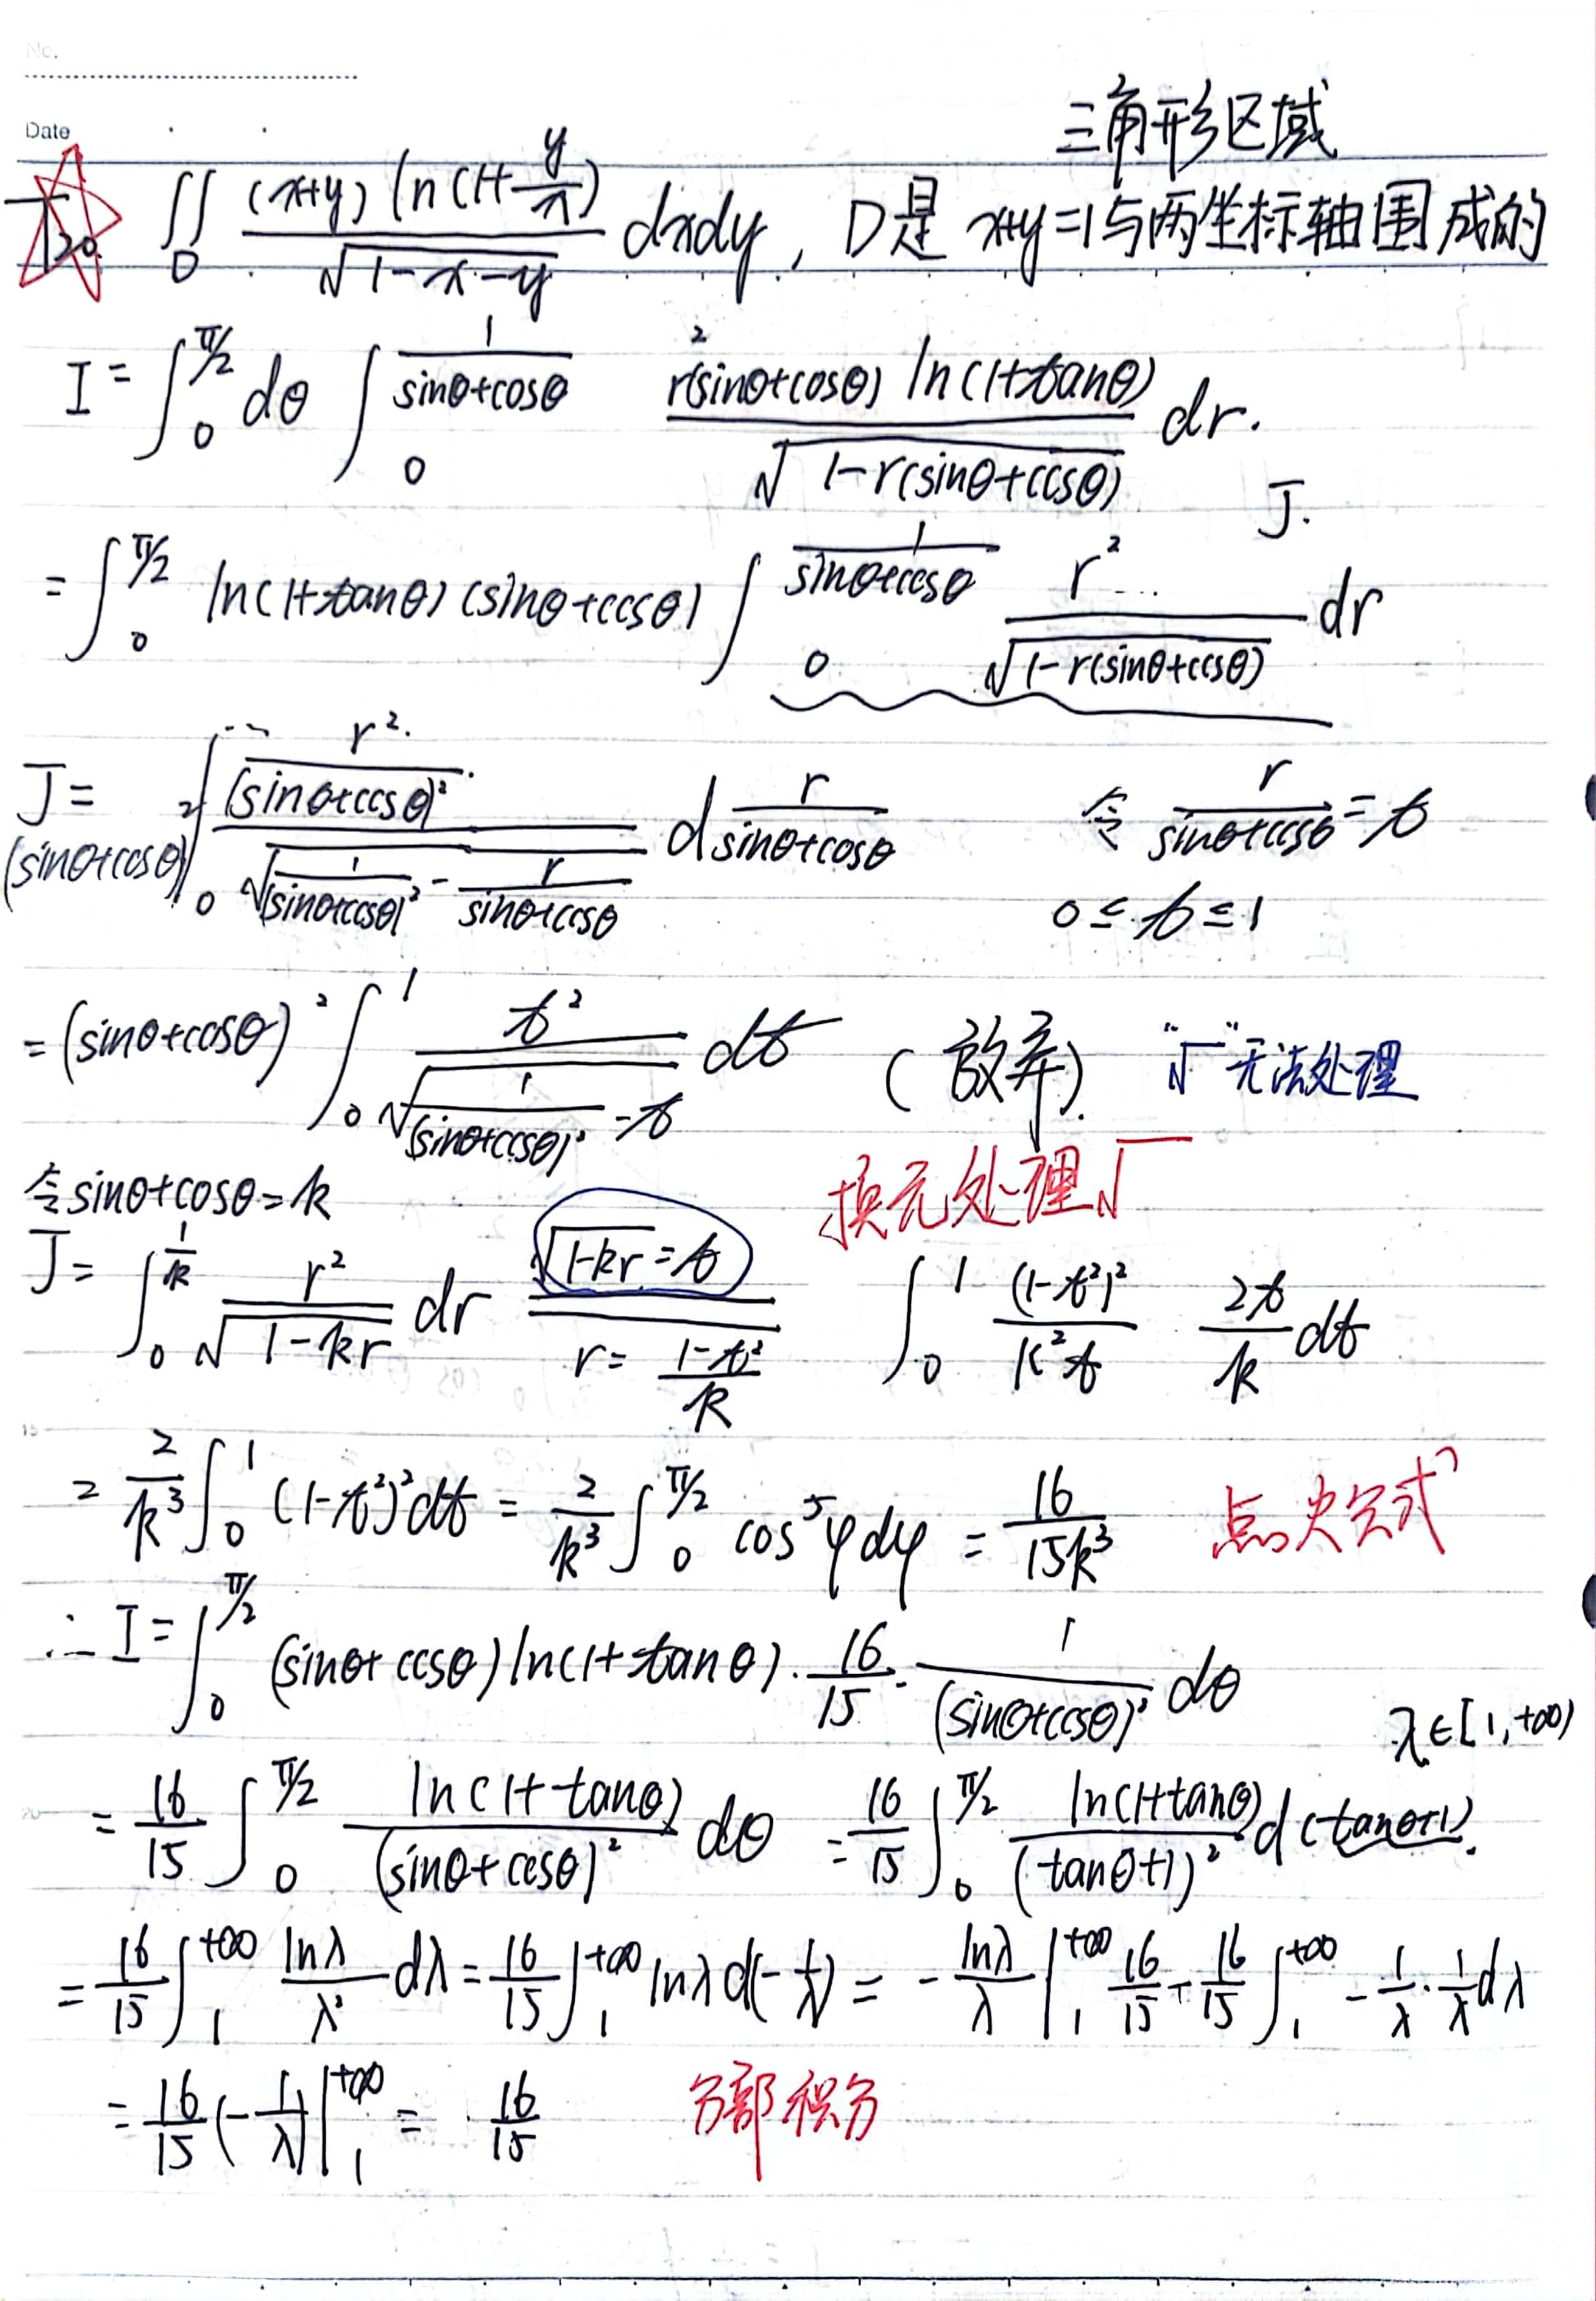 No.
Date
三角形区域
T20. ∬_D (x+y) ln(1+y/x) / √(1-x-y) dxdy, D是 x+y=1与两坐标轴围成的
I = ∫_0^{π/2} dθ ∫_0^{1/(sinθ+cosθ)} r²(sinθ+cosθ) ln(1+tanθ) / √(1-r(sinθ+cosθ)) dr.
J.
= ∫_0^{π/2} ln(1+tanθ) (sinθ+cosθ) ∫_0^{1/(sinθ+cosθ)} r² / √(1-r(sinθ+cosθ)) dr
J = (sinθ+cosθ)² ∫_0 (r²/(sinθ+cosθ)²) / √(1/(sinθ+cosθ)² - r/(sinθ+cosθ)) d r/(sinθ+cosθ) 令 r/(sinθ+cosθ) = t
0 ≤ t ≤ 1
= (sinθ+cosθ)² ∫_0^1 t² / √(1/(sinθ+cosθ)² - t) dt (放弃). "√" 无法处理
令sinθ+cosθ=k 换元处理√
J = ∫_0^{1/k} r² / √(1-kr) dr ══ √(1-kr) = t, r = (1-t²)/k ∫_0^1 (1-t²)²/(k²t) · 2t/k dt
= 2/k³ ∫_0^1 (1-t²)² dt = 2/k³ ∫_0^{π/2} cos⁵φ dφ = 16/(15k³) 点火公式
∴ I = ∫_0^{π/2} (sinθ+cosθ) ln(1+tanθ) · 16/15 · 1/(sinθ+cosθ)³ dθ
λ∈[1,+∞)
= 16/15 ∫_0^{π/2} ln(1+tanθ)/(sinθ+cosθ)² dθ = 16/15 ∫_0^{π/2} ln(1+tanθ)/(tanθ+1)² d(tanθ+1).
= 16/15 ∫_1^{+∞} lnλ/λ² dλ = 16/15 ∫_1^{+∞} lnλ d(-1/λ) = -lnλ/λ |_1^{+∞} 16/15 - 16/15 ∫_1^{+∞} -1/λ · 1/λ dλ
= 16/15 (-1/λ)|_1^{+∞} = 16/15 分部积分